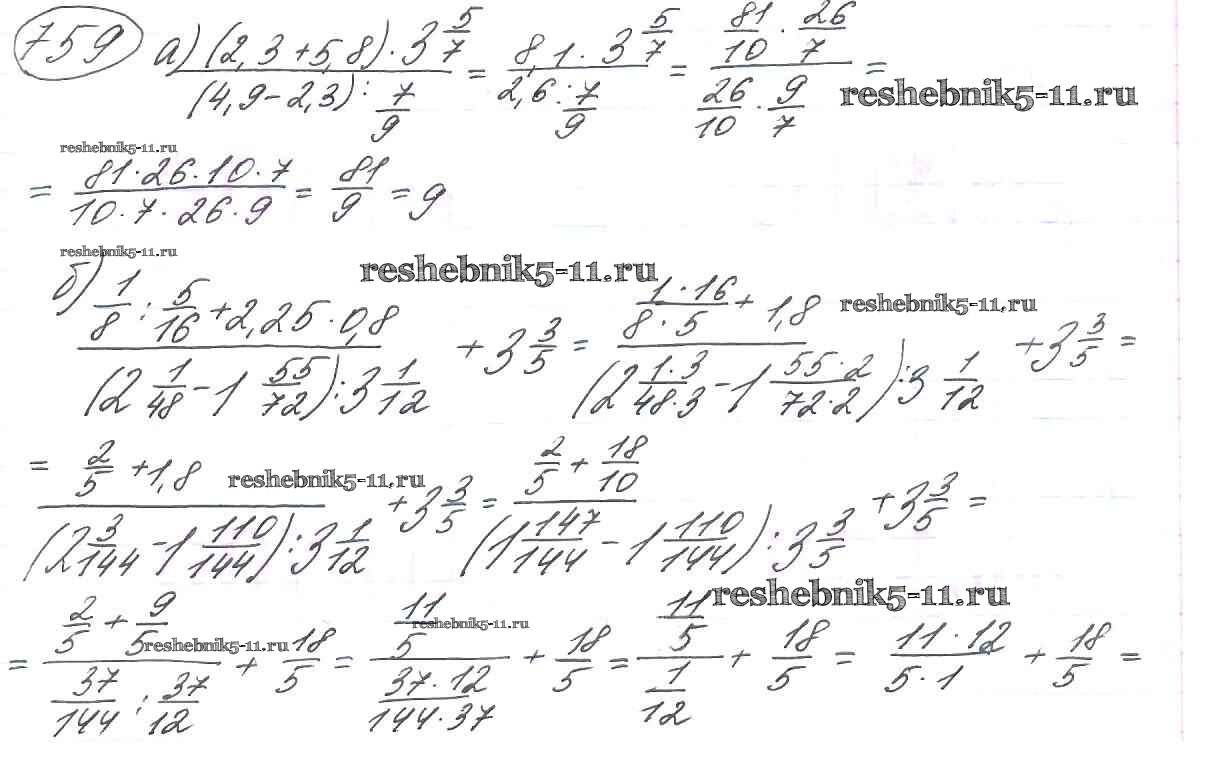 759 а) ((2,3+5,8)·3 5/7)/((4,9-2,3):7/9) = (8,1·3 5/7)/(2,6:7/9) = (81/10·26/7)/(26/10·9/7) =
reshebnik5-11.ru
reshebnik5-11.ru
= (81·26·10·7)/(10·7·26·9) = 81/9 = 9
reshebnik5-11.ru
reshebnik5-11.ru
б) (1/8:5/16+2,25·0,8)/((2 1/48-1 55/72):3 1/12) + 3 3/5 = ((1·16)/(8·5)+1,8)/((2 (1·3)/(48·3)-1 (55·2)/(72·2)):3 1/12) + 3 3/5 =
reshebnik5-11.ru
= (2/5+1,8)/((2 3/144-1 110/144):3 1/12) + 3 3/5 = (2/5+18/10)/((1 147/144-1 110/144):3 3/5) + 3 3/5 =
reshebnik5-11.ru
reshebnik5-11.ru
= (2/5+9/5)/(37/144:37/12) + 18/5 = (11/5)/((37·12)/(144·37)) + 18/5 = (11/5)/(1/12) + 18/5 = (11·12)/(5·1) + 18/5 =
reshebnik5-11.ru
reshebnik5-11.ru